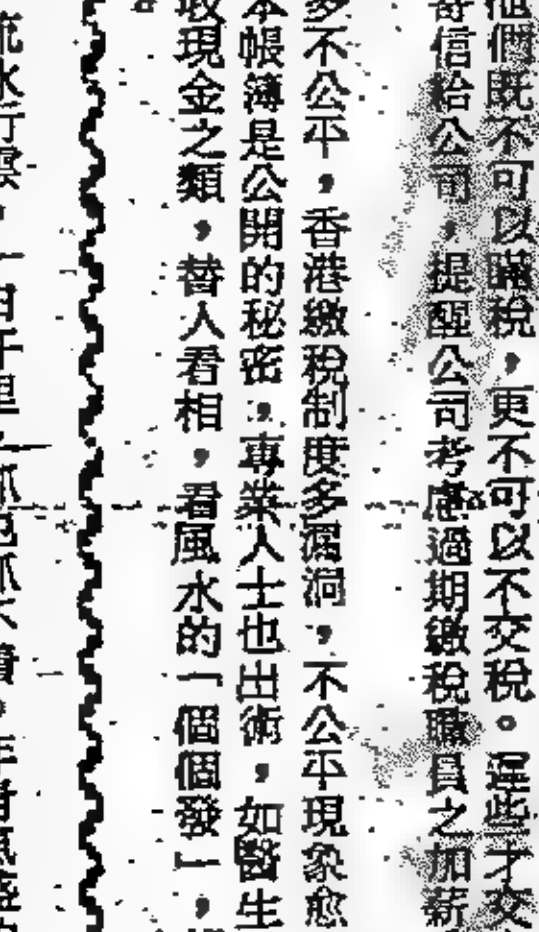 他們既不可以瞞稅，更不可以不交稅。遲些才交
寄信給公司，提醒公司考慮過期繳稅職員之加薪
多不公平，香港繳稅制度多漏洞，不公平現象愈
本帳簿是公開的秘密，專業人士也出術，如醫生
收現金之類，替人看相，看風水的「個個發」，
流水行雲，一日千里